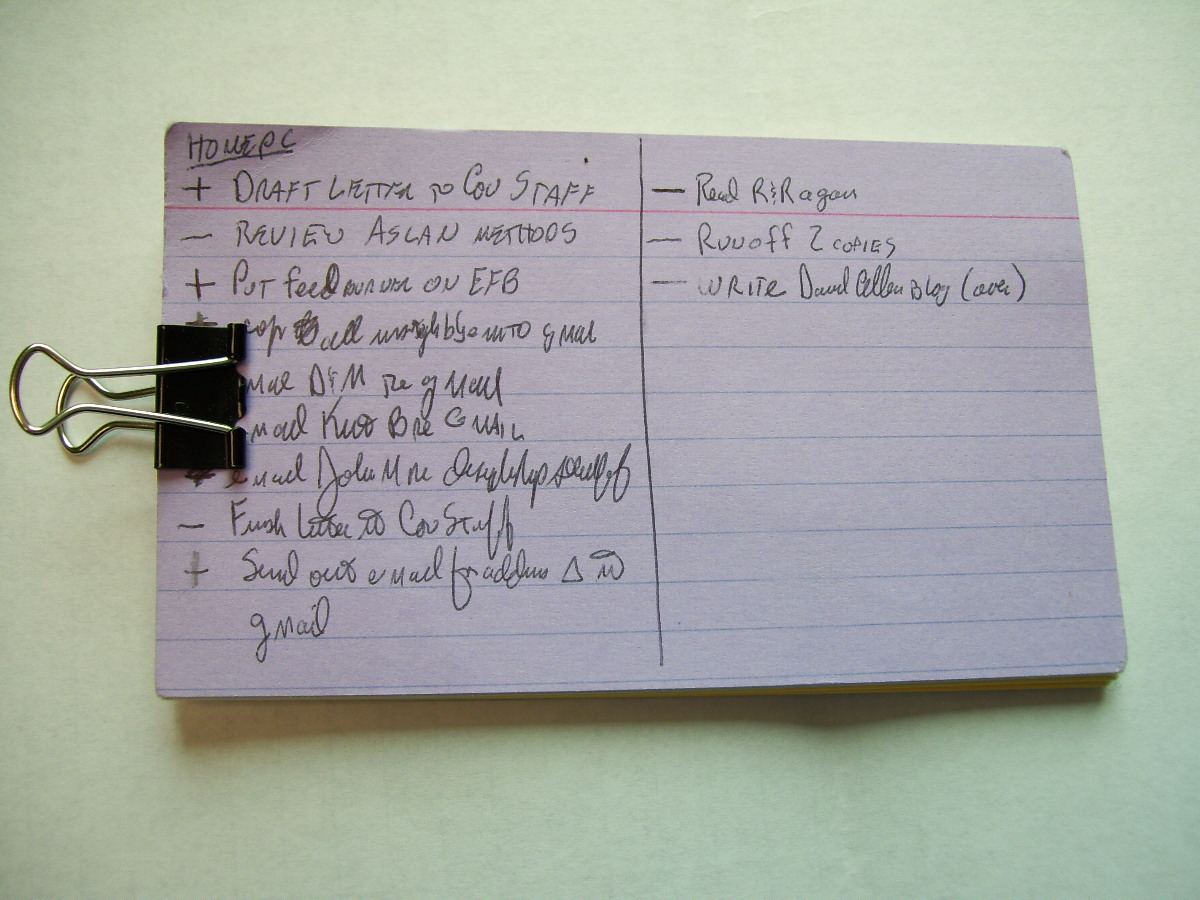 HOMEPC
+ DRAFT LETTER TO COV STAFF
— REVIEW ASLAN METHODS
+ PUT feedburner ON EFB
all into gmail
D&M re gmail
Kurt B re GMAIL
email John M re
— Finish Letter to Cov Staff
+ Send out email for address Δ to
gmail
— Read R&Ragan
— RUNOFF 2 COPIES
— WRITE David Blog (over)